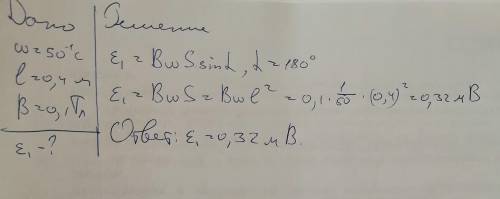 Дано
ω=50⁻¹с
l=0,4 м
B=0,1Тл
ε₁-?
Решение
ε₁=BωSsinα, α=180°
ε₁=BωS=Bωl²=0,1·1/50·(0,4)²=0,32мВ
Ответ: ε₁=0,32мВ.